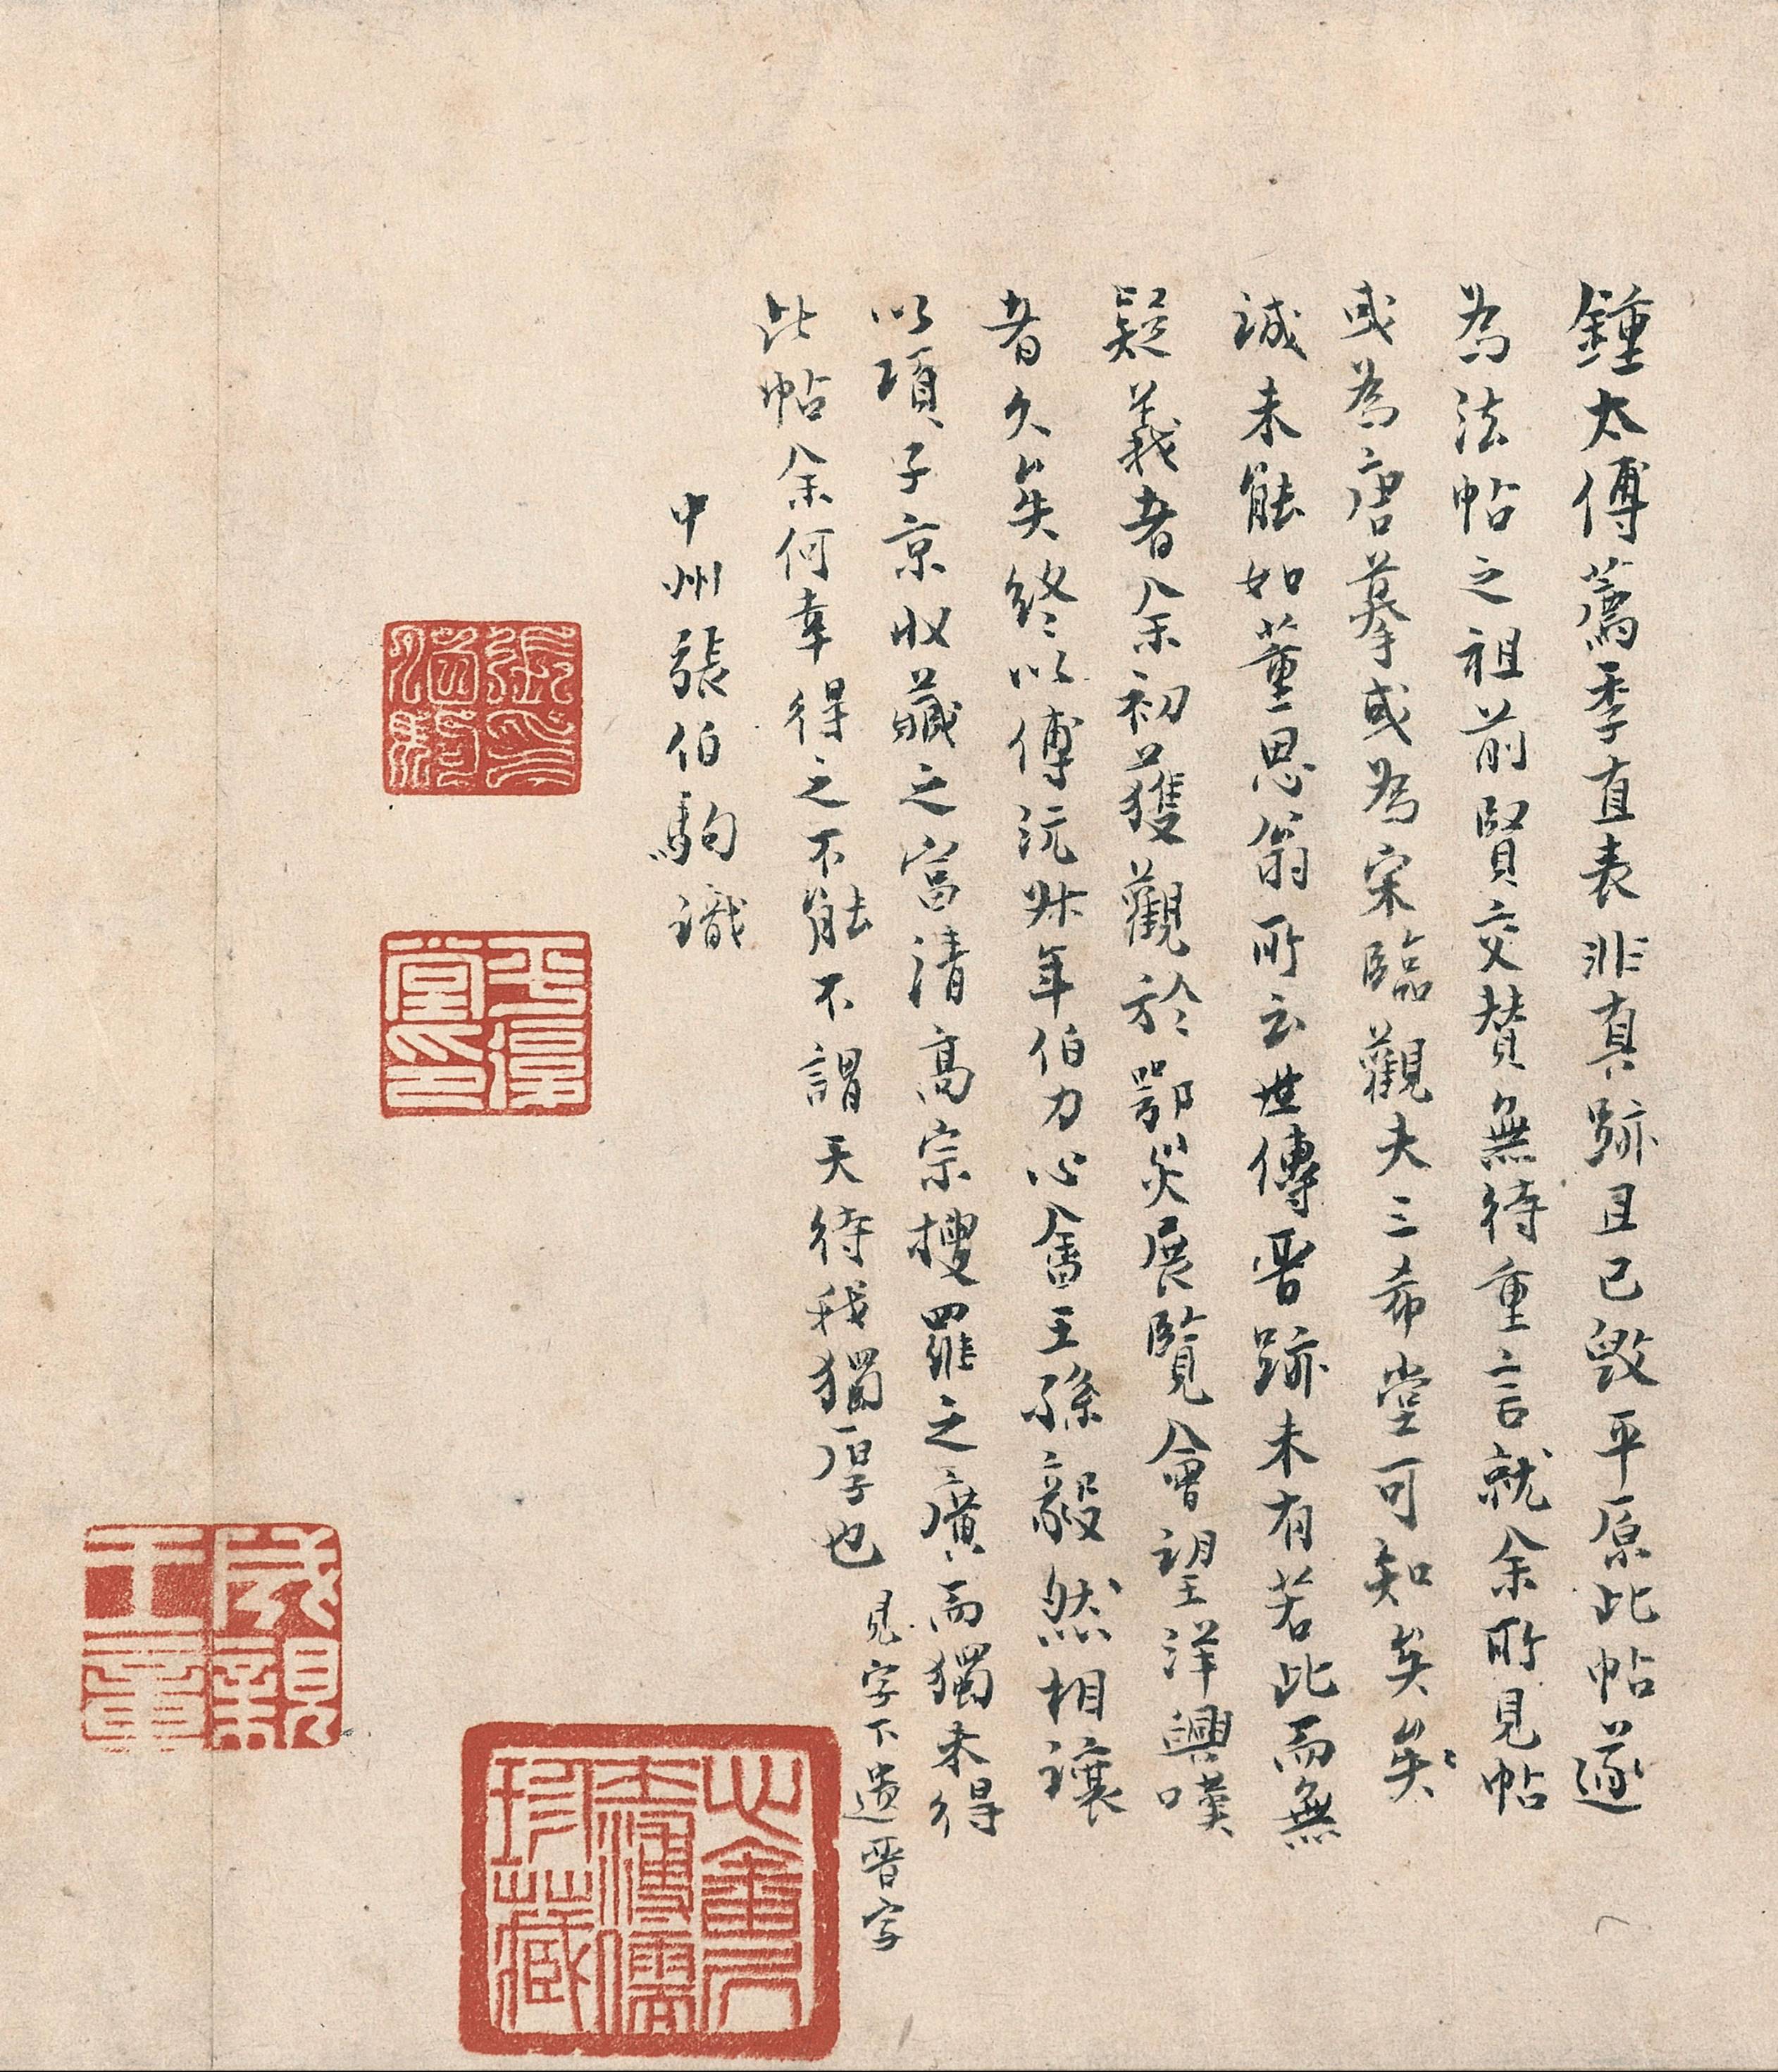 鍾太傅薦季直表非真跡且已毀平原此帖遂
為法帖之祖前賢交贊無待重言就余所見帖
或為唐摹或為宋臨觀夫三希堂可知矣矣
誠未能如董思翁所云世傳晉跡未有若此而無
疑義者余初獲觀於鄂災展覽會望洋興嘆
者久矣終以傅沅叔年伯力心畬王孫毅然相讓
以項子京收藏之富清高宗搜羅之廣而獨未得
此帖余何幸得之不能不謂天待我獨厚也
見字下遺晉字
中州張伯駒識
張伯駒印
平復堂印
成親王
心畬尺
書溥儒
珍藏